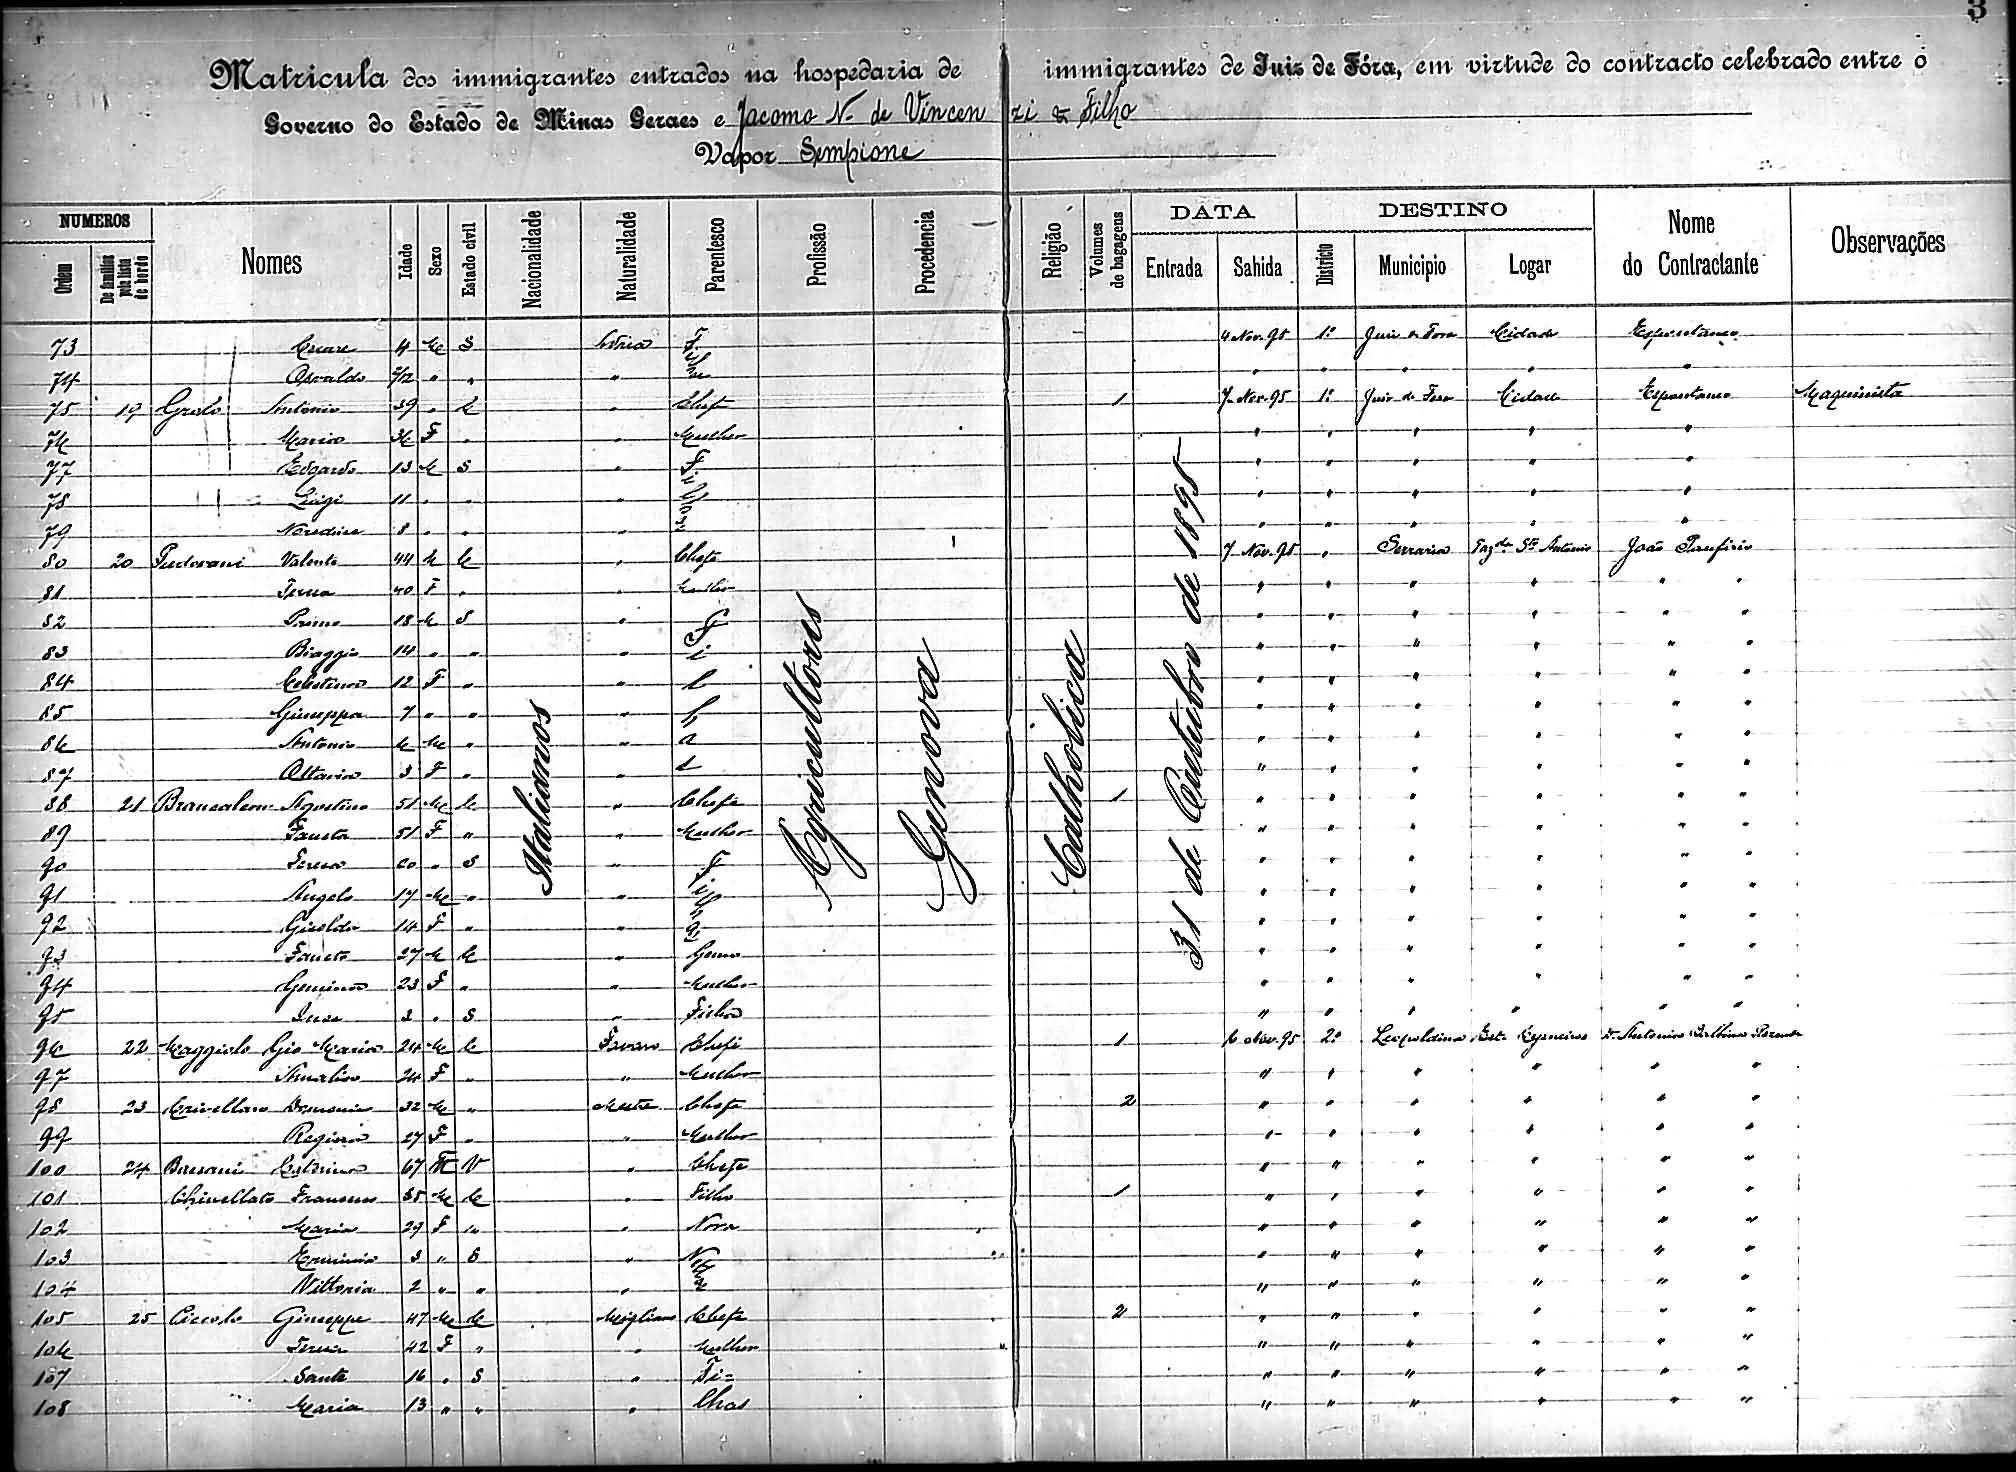 3
Matricula dos immigrantes entrados na hospedaria de immigrantes de Juiz de Fóra, em virtude do contracto celebrado entre o
Governo do Estado de Minas Geraes e Jacomo N. de Vincenzi & Filho
Vapor Sempione
NUMEROS DATA DESTINO
Ordem De familias pela lista de bordo Nomes Idade Sexo Estado civil Nacionalidade Naturalidade Parentesco Profissão Procedencia Religião Volumes de bagagens Entrada Sahida Districto Municipio Logar Nome do Contractante Observações
Italianos
Agricultores
Genova
Catholica
31 de Outubro de 1895
73 4 S F. 4 Nov. 95 1º Juiz de Fora Cidade Espontaneo
74 Osvaldo " " " " " " "
75 19 Grolo Antonio 39 " C " Chefe 1 7 Nov. 95 1º Juiz de Fora Cidade Espontaneo Maquinista
76 Maria 36 F " " Mulher " " " " "
77 Edgardo 13 M S " " " " " "
78 Luigi 11 " " " " " " " "
79 8 " " " " " " " "
80 20 Pudovani Valente 44 M C " Chefe 1 7 Nov. 95 " Serraria Fazda Sto Antonio João
81 40 F " " Mulher " " " " " "
82 Primo 18 M S " F " " " " " "
83 Biaggio 14 " " " i " " " " " "
84 Celestina 12 F " " l " " " " " "
85 Giuseppa 7 " " " h " " " " " "
86 Antonio 6 M " " o " " " " " "
87 Ottavia 3 F " " s " " " " " "
88 21 Brancaleon Agostino 51 M C " Chefe 1 " " " " " "
89 Fausta 51 F " " Mulher " " " " " "
90 Teresa 20 " S " F " " " " " "
91 Angelo 17 M " " i " " " " " "
92 14 F " " " " " " " "
93 Fausto 27 M C " Genro " " " " " "
94 Gemina 23 F " " Mulher " " " " " "
95 3 " S " Filha " " " " " "
96 22 Maggiolo Gio Maria 24 M C Favaro Chefe 1 6 Nov. 95 2º Leopoldina Est. Dr. Antonio Balbino
97 Amalia 24 F " " Mulher " " " " " "
98 23 Crivellaro Domenico 32 M " Mestre Chefe 2 " " " " " "
99 Regina 27 F " " Mulher " " " " " "
100 24 Caterina 67 F V " Chefe " " " " " "
101 Chinellato Francesco 35 M C " Filho 1 " " " " " "
102 Maria 29 F " " Nora " " " " " "
103 Erminia 3 " S " " " " " " "
104 Vittoria 2 " " " " " " " " "
105 25 Ciccolo Giuseppe 47 M C Chefe 2 " " " " " "
106 Teresa 42 F " " Mulher " " " " " "
107 Santa 16 " S " Fi= " " " " " "
108 Maria 13 " " " lhas " " " " " "